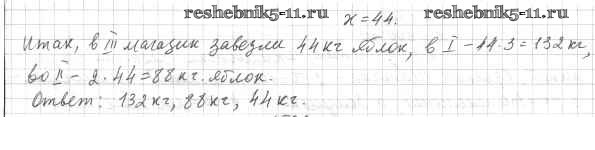 reshebnik5-11.ru
x=44.
reshebnik5-11.ru
Итак, в III магазин завезли 44 кг яблок, в I – 44·3=132 кг,
во II – 2·44=88 кг. яблок.
Ответ: 132 кг, 88 кг, 44 кг.